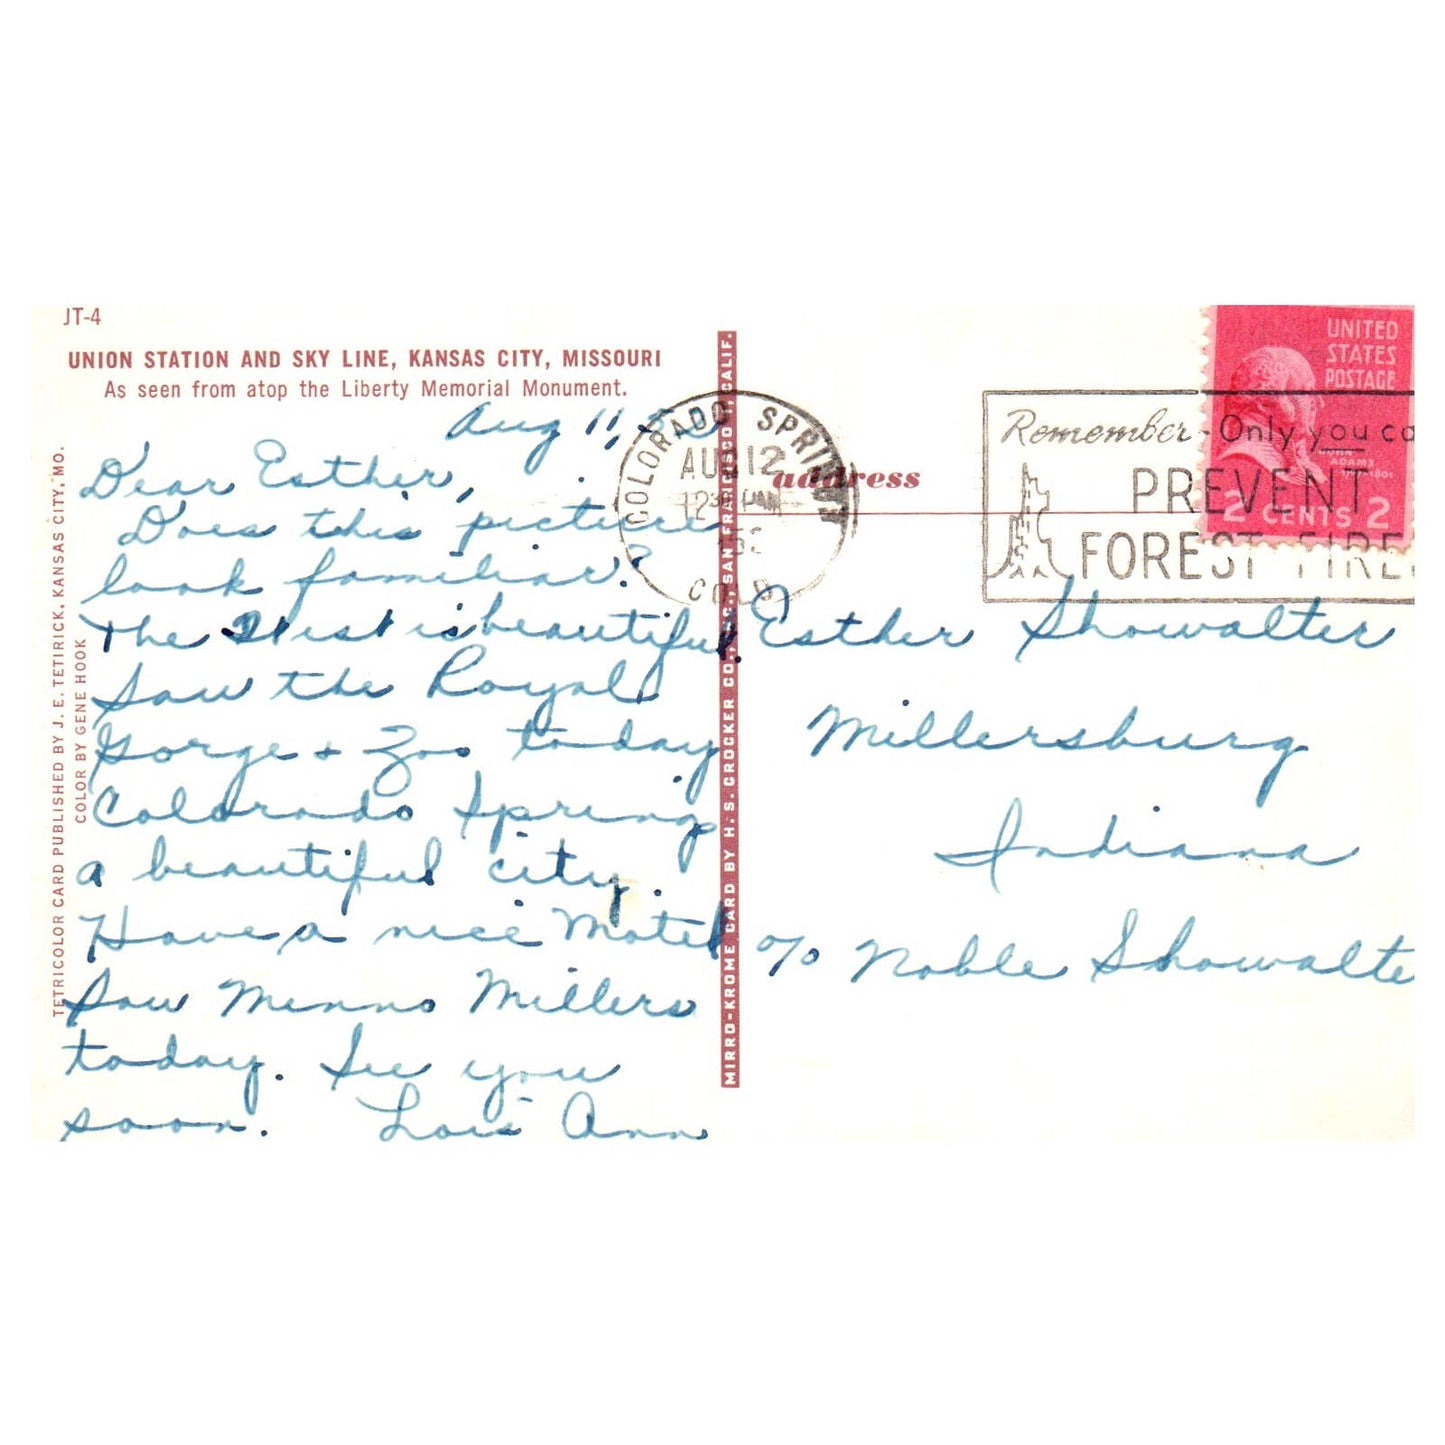 JT-4
UNION STATION AND SKY LINE, KANSAS CITY, MISSOURI
As seen from atop the Liberty Memorial Monument.
Aug 11,
Dear Esther,
Does this picture
look familiar?
The West is beautiful.
Saw the Royal
Gorge + Zoo today
Colorado Springs
a beautiful city.
Have a nice Motel
Saw Menno Millers
today. See you
soon. Lois Ann
TETRICOLOR CARD PUBLISHED BY J. E. TETIRICK, KANSAS CITY, MO.
COLOR BY GENE HOOK
MIRRO-KROME CARD BY H. S. CROCKER CO., SAN FRANCISCO 1, CALIF.
COLORADO SPRINGS
AUG 12
COLO
address
Remember - Only you ca
PREVENT
FOREST FIRE
UNITED
STATES
POSTAGE
2 CENTS 2
Esther Showalter
Millersburg
Indiana
c/o Noble Showalte